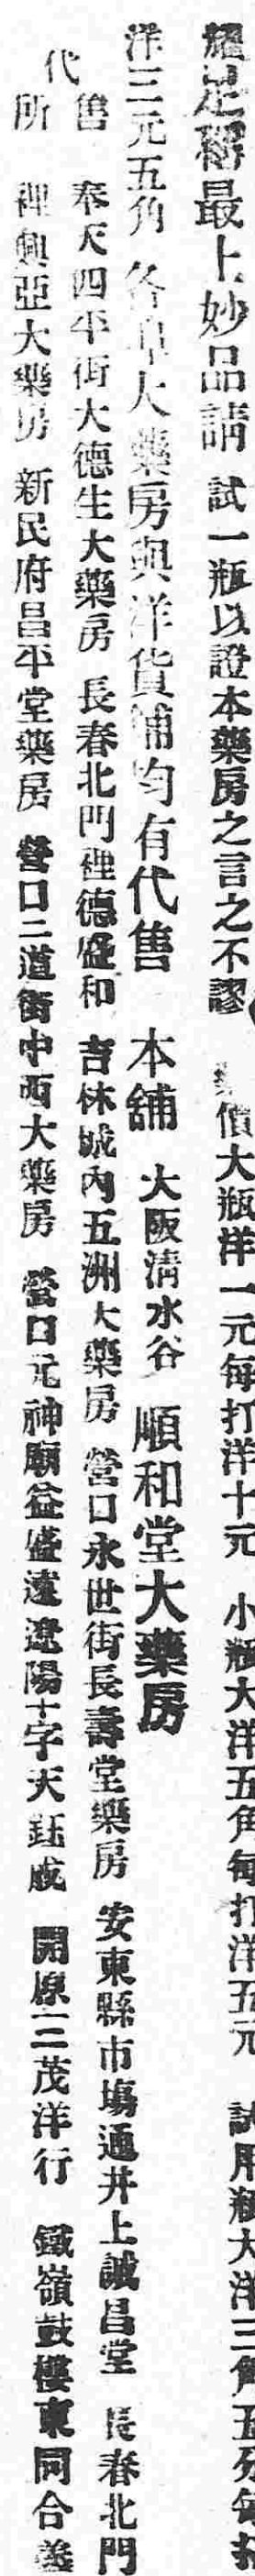 足稱最上妙品請試一瓶以證本藥房之言之不謬 價大瓶洋一元每打洋十元 小瓶大洋五角每打洋五元 試用瓶大洋三角五分每打
洋三元五角 各埠大藥房與洋貨舖均有代售 本舖 大阪清水谷 順和堂大藥房
代售所
奉天四平街大德生大藥房 長春北門裡德盛和 吉林城內五洲大藥房 營口永世街長壽堂藥房 安東縣市場通井上誠昌堂 長春北門
裡興亞大藥房 新民府昌平堂藥房 營口二道街中西大藥房 營口元神廟益盛遠 遼陽十字天鈺成 開原三茂洋行 鐵嶺鼓樓東同合